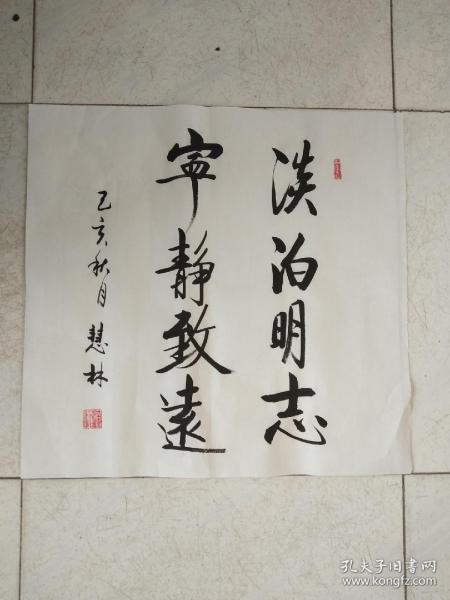 淡泊明志
寧靜致遠
乙亥秋月 慧林
孔夫子旧书网
www.kongfz.com